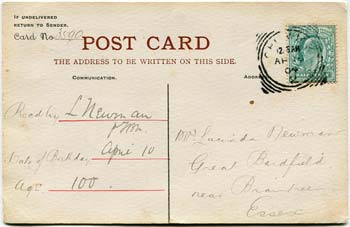 If undelivered
return to Sender.
Card No. 3590
POST CARD
THE ADDRESS TO BE WRITTEN ON THIS SIDE.
Communication.
Address
12.15AM
AP
04
Recd by L Newman
Date of Birthday April 10
Age 100.
Mrs Lucinda Newman
Great Bardfield
near Braintree
Essex